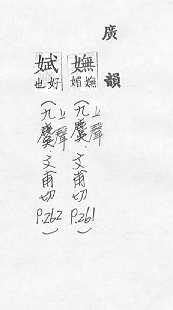 廣韻
嫵
嫵媚
(上聲九麌 文甫切 P.261)
娬
好也
(上聲九麌 文甫切 P.262)